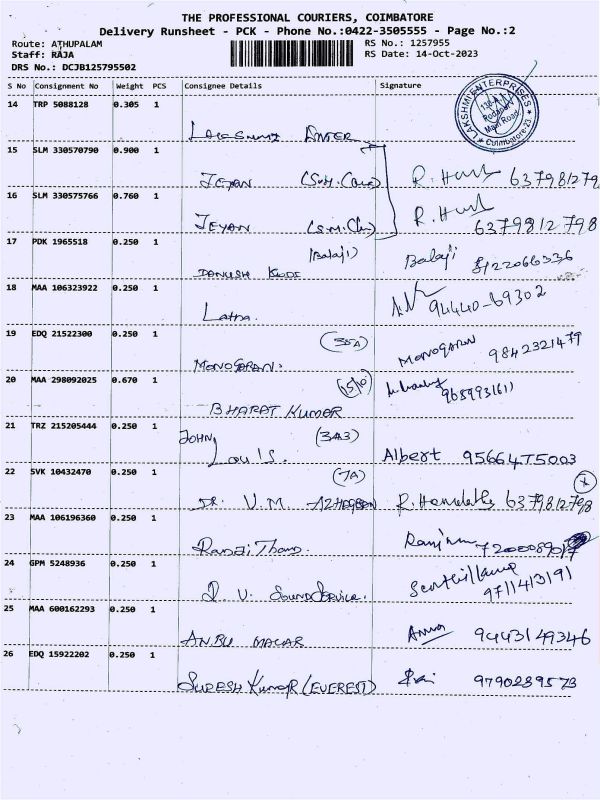 THE PROFESSIONAL COURIERS, COIMBATORE
Delivery Runsheet - PCK - Phone No.:0422-3505555 - Page No.:2
Route: ATHUPALAM
RS No.: 1257955
Staff: RAJA
RS Date: 14-Oct-2023
DRS No.: DCJB125795502
S No Consignment No Weight PCS Consignee Details Signature
LAKSHMI ENTERPRISES
Main Road
Coimbatore-23
14 TRP 5088128 0.305 1
15 SLM 330570790 0.900 1
JEYAN R. 637981279
16 SLM 330575766 0.760 1
JEYAN R. 6379812798
17 PDK 1965518 0.250 1
(Balaji) Balaji 8122066336
DANUSH KODI
18 MAA 106323922 0.250 1
Latha. 94440-69302
19 EDQ 21522300 0.250 1
(35A)
MONOGARAN. MONOGARAN 9842321479
20 MAA 298092025 0.670 1
(15/10) 9659931611
BHARAT KUMAR
21 TRZ 215205444 0.250 1
JOHN (3A3)
LOUIS. Albert 9566475003
22 SVK 10432470 0.250 1
(7A)
DR. V.M. AZHAGBAN R. 6379812798
23 MAA 106196360 0.250 1
24 GPM 5248936 0.250 1
V. Sound Service. 9711413191
25 MAA 600162293 0.250 1
ANBU MALAR Anbu 9443149346
26 EDQ 15922202 0.250 1
SURESH KUMAR (EVEREST) 9790289573